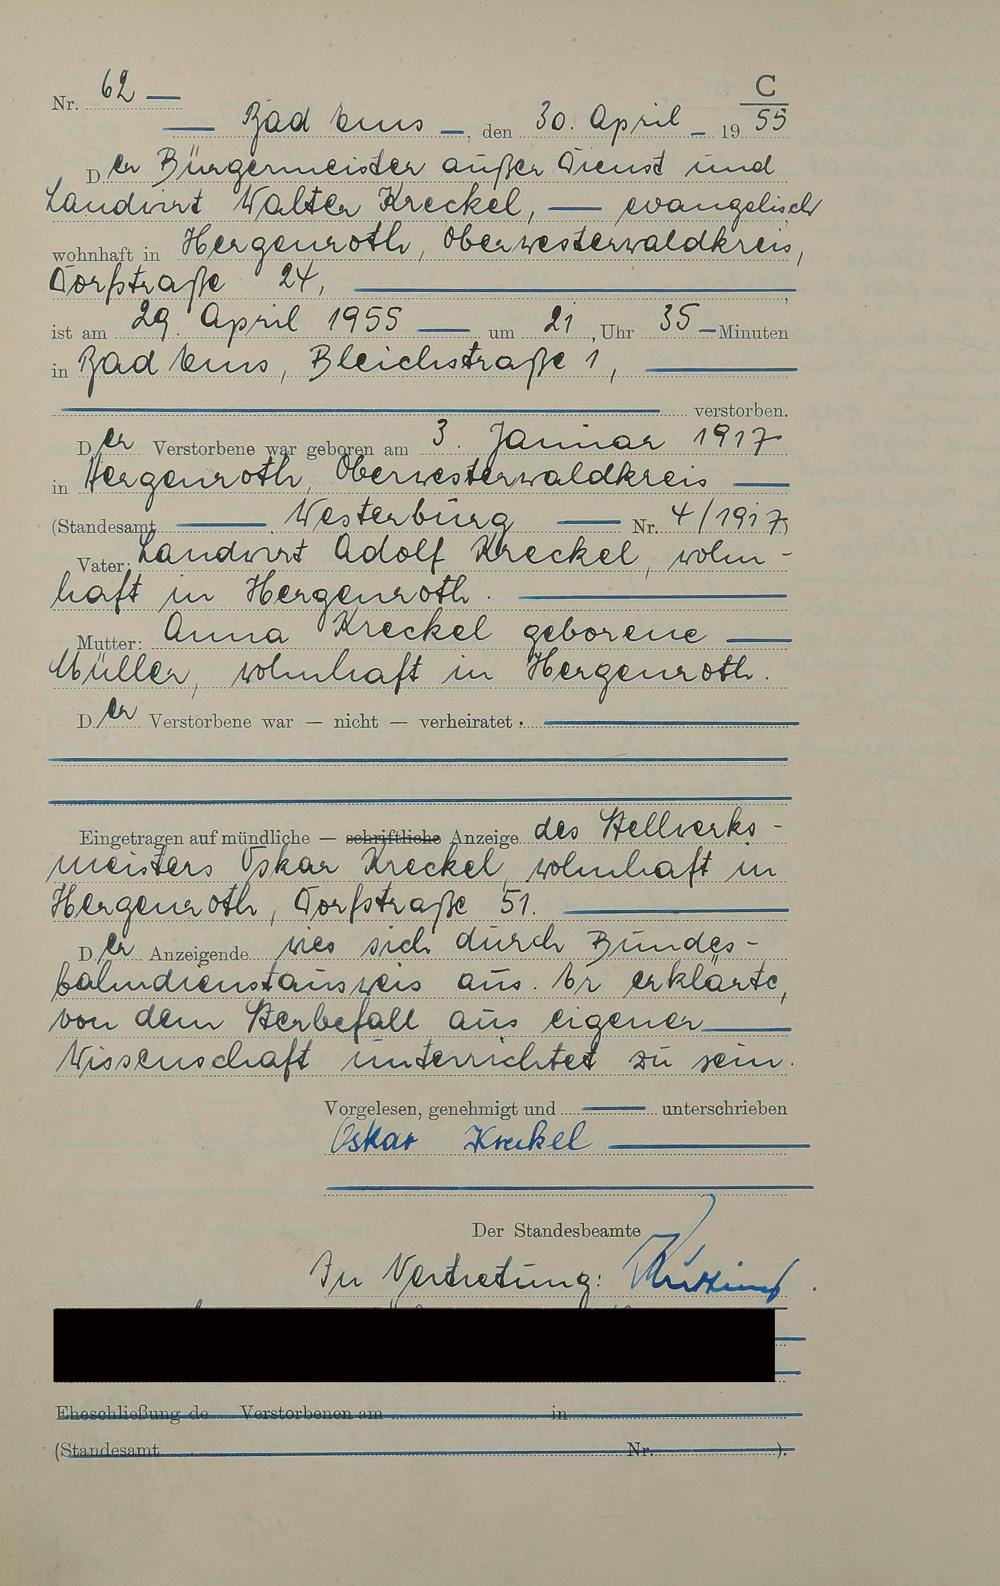 C
Nr. 62 —
— Bad Ems —, den 30. April — 19 55
Der Bürgermeister außer Dienst und
Landwirt Walter Kreckel, — evangelisch
wohnhaft in Hergenroth, Oberwesterwaldkreis,
Dorfstraße 24,
ist am 29. April 1955 — um 21 Uhr 35 — Minuten
in Bad Ems, Bleichstraße 1,
verstorben.
Der Verstorbene war geboren am 3. Januar 1917
in Hergenroth, Oberwesterwaldkreis —
(Standesamt — Westerburg — Nr. 4/1917)
Vater: Landwirt Adolf Kreckel, wohn-
haft in Hergenroth.
Mutter: Anna Kreckel geborene
Müller, wohnhaft in Hergenroth.
Der Verstorbene war — nicht — verheiratet.
Eingetragen auf mündliche — schriftliche Anzeige des Stellwerks-
meisters Oskar Kreckel, wohnhaft in
Hergenroth, Dorfstraße 51.
Der Anzeigende wies sich durch Bundes-
bahndienstausweis aus. Er erklärte,
von dem Sterbefall aus eigener
Wissenschaft unterrichtet zu sein.
Vorgelesen, genehmigt und — unterschrieben
Oskar Kreckel
Der Standesbeamte
In Vertretung:
Eheschließung de Verstorbenen am in
(Standesamt Nr. ).